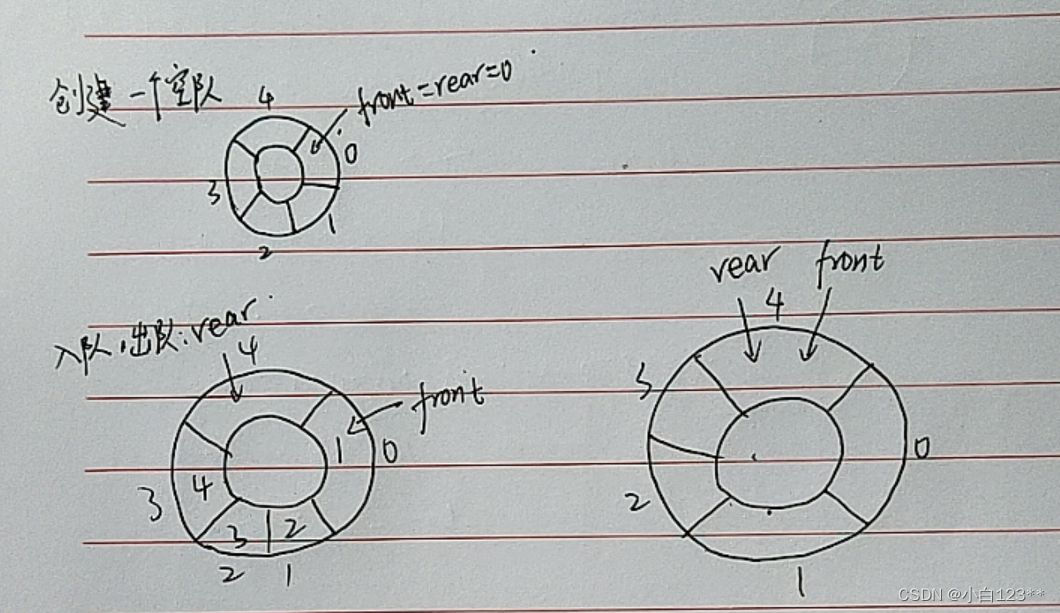 创建一个空队
front=rear=0
4
0
3
1
2
入队,出队:rear
4
front
1
0
4
3
3
2
2
1
rear
front
4
3
0
2
1
CSDN @小白123**